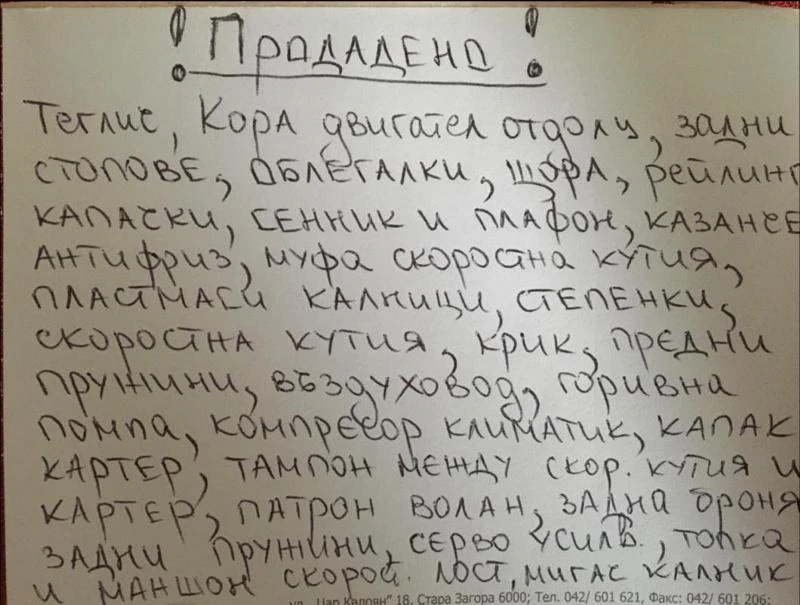 ! ПРОДАДЕНО !
ТЕГЛИЧ, КОРА ДВИГАТЕЛ ОТДОЛУ, ЗАДНИ
СТОПОВЕ, ОБЛЕГАЛКИ, ЩОРА, РЕЙЛИНГ
КАПАСКИ, СЕННИК И ПЛАФОН, КАЗАНЧЕ
АНТИФРИЗ, МУФА СКОРОСТНА КУТИЯ,
ПЛАСТМАСИ КАЛНИЦИ, СТЕПЕНКИ,
СКОРОСТНА КУТИЯ, КРИК, ПРЕДНИ
ПРУЖИНИ, ВЪЗДУХОВОД, ГОРИВНА
ПОМПА, КОМПРЕСОР КЛИМАТИК, КАПАК
КАРТЕР, ТАМПОН МЕЖДУ СКОР. КУТИЯ И
КАРТЕР, ПАТРОН ВОЛАН, ЗАДНА БРОНЯ
ЗАДНИ ПРУЖИНИ, СЕРВО УСИЛВ., ТОПКА
И МАНШОН СКОРОС. ЛОСТ, МИГАЧ КАЛНИК
ул. „Цар Калоян" 18, Стара Загора 6000; Тел. 042/ 601 621, Факс: 042/ 601 206;